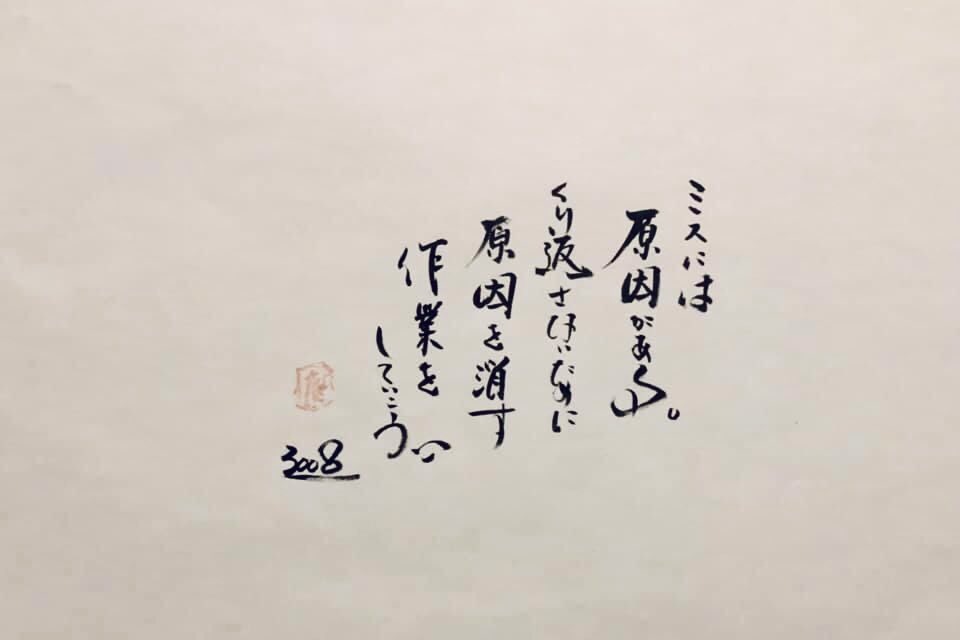 ミスには
原因がある。
くり返さないために
原因を消す
作業を
していこう
3008